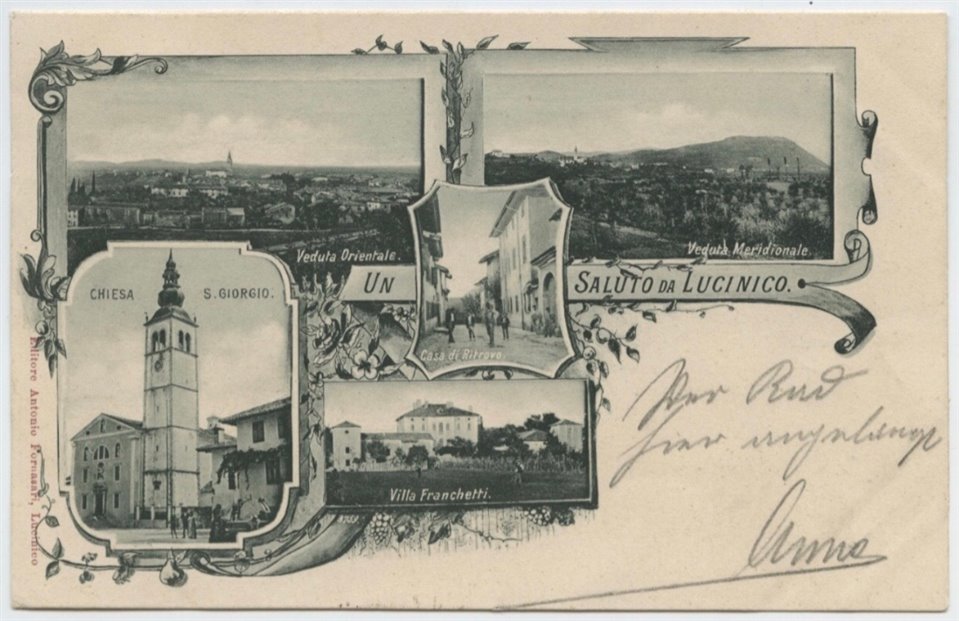 Veduta Orientale.
Veduta Meridionale.
UN SALUTO DA LUCINICO.
CHIESA S. GIORGIO.
Casa di Ritrovo.
Villa Franchetti.
Editore Antonio Fornasari, Lucinico
Per Rad
hier angelangt
Anna